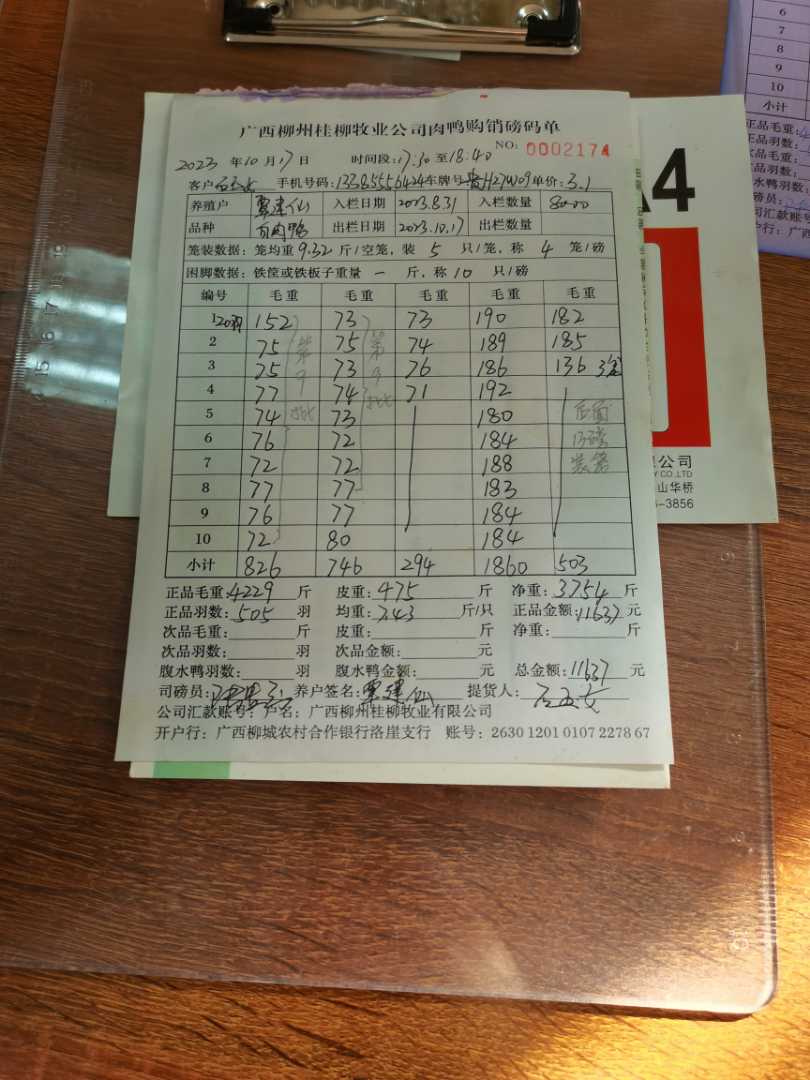 广西柳州桂柳牧业公司肉鸭购销磅码单
NO: 0002174
2023 年 10 月 17 日 时间段: 17:30 至 18:40
客户 手机号码: 13385556424 车牌号 单价: 3.1
养殖户 覃建仙 入栏日期 2023.8.31 入栏数量
品种 白肉鸭 出栏日期 2023.10.17 出栏数量
笼装数据: 笼均重 9.32 斤/空笼, 装 5 只/笼, 称 4 笼/磅
困脚数据: 铁筐或铁板子重量 一 斤, 称 10 只/磅
编号 毛重 毛重 毛重 毛重 毛重
1 20羽 152 73 73 190 182
2 75 75 74 189 185
3 75 73 76 186 136 3笼
4 77 74 71 192
5 74 73 180 后面
6 76 72 184 13磅
7 72 72 188 装笼
8 77 77 183
9 76 77 184
10 72 80 184
小计 826 746 294 1860 503
正品毛重: 4229 斤 皮重: 475 斤 净重: 3754 斤
正品羽数: 505 羽 均重: 7.43 斤/只 正品金额: 11637 元
次品毛重: 斤 皮重: 斤 净重: 斤
次品羽数: 羽 次品金额: 元
腹水鸭羽数: 羽 腹水鸭金额: 元 总金额: 11637 元
司磅员: 养户签名: 覃建仙 提货人:
公司汇款账号: 户名: 广西柳州桂柳牧业有限公司
开户行: 广西柳城农村合作银行洛崖支行 账号: 2630 1201 0107 2278 67
A4
限公司
CO.,LTD
山华桥
-3856
6
7
8
9
10
小计
正品毛重:
正品羽数:
次品毛重:
次品羽数:
腹水鸭羽数:
司磅员:
公司汇款账
开户行: 广西